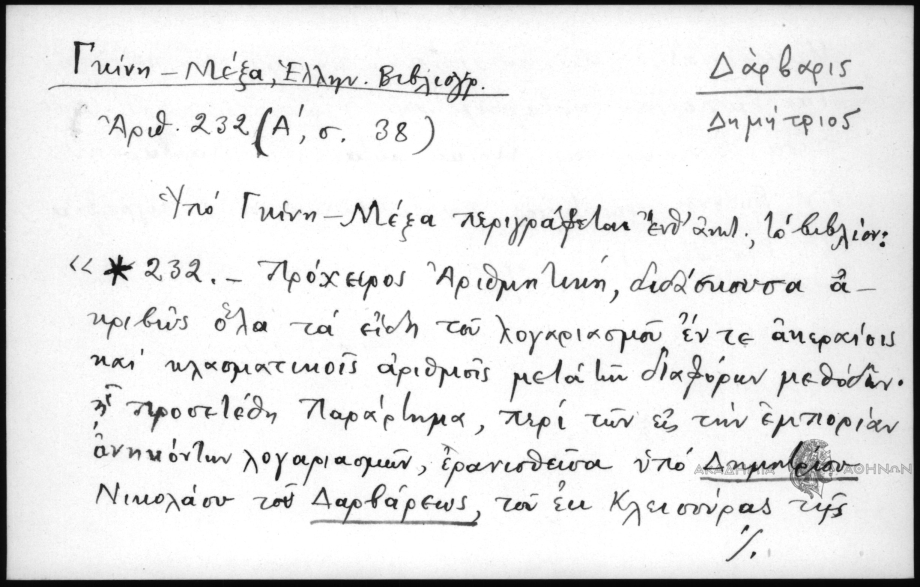 Γκίνη – Μέξα, Ἑλλην. Βιβλιογρ.
Ἀριθ. 232 (Α΄, σ. 38)
Δάρβαρις
Δημήτριος
Ὑπό Γκίνη – Μέξα περιγράφεται ἔνθ' ἀνωτ., τό βιβλίον:
«* 232. – Πρόχειρος Ἀριθμητική, διδάσκουσα ἀ-
κριβῶς ὅλα τά εἴδη τοῦ λογαριασμοῦ ἔν τε ἀκεραίοις
καί κλασματικοῖς ἀριθμοῖς μετά τῶν διαφόρων μεθόδων.
ᾗ προσετέθη Παράρτημα, περί τῶν εἰς τήν ἐμπορίαν
ἀνηκόντων λογαριασμῶν, ἐρανισθεῖσα ὑπό Δημητρίου
Νικολάου τοῦ Δαρβάρεως, τοῦ ἐκ Κλεισούρας τῆς
./.
ΑΚΑΔΗΜΙΑ ΑΘΗΝΩΝ